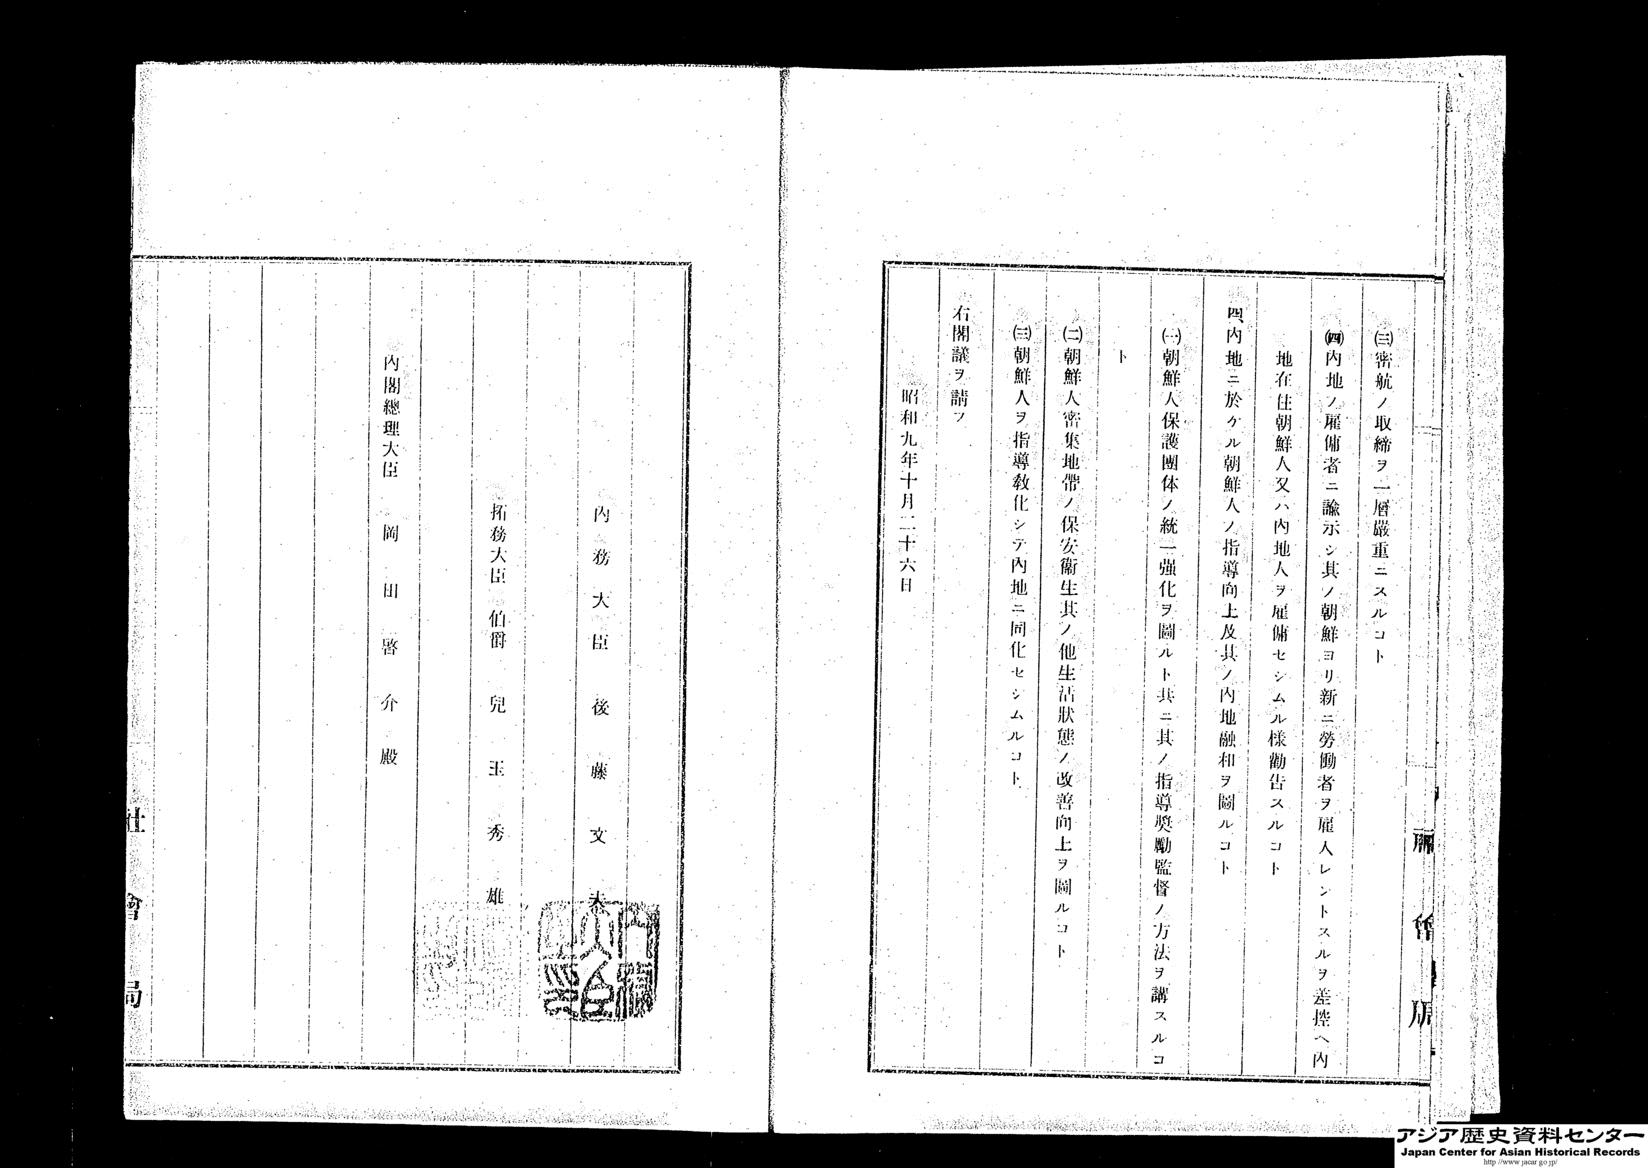 ㈢密航ノ取締ヲ一層嚴重ニスルコト
㈣內地ノ雇傭者ニ諭示シ其ノ朝鮮ヨリ新ニ勞働者ヲ雇入レントスルヲ差控ヘ內
地在住朝鮮人又ハ內地人ヲ雇傭セシムル樣勸告スルコト
四、內地ニ於ケル朝鮮人ノ指導向上及其ノ內地融和ヲ圖ルコト
㈠朝鮮人保護團体ノ統一强化ヲ圖ルト共ニ其ノ指導奬勵監督ノ方法ヲ講スルコ
ト
㈡朝鮮人密集地帶ノ保安衞生其ノ他生活狀態ノ改善向上ヲ圖ルコト
㈢朝鮮人ヲ指導敎化シテ內地ニ同化セシムルコト
右閣議ヲ請フ
昭和九年十月二十六日
內務大臣 後藤文夫
拓務大臣 伯爵 兒玉秀雄
內閣總理大臣 岡田啓介殿
社會局
アジア歴史資料センター
Japan Center for Asian Historical Records
http://www.jacar.go.jp/